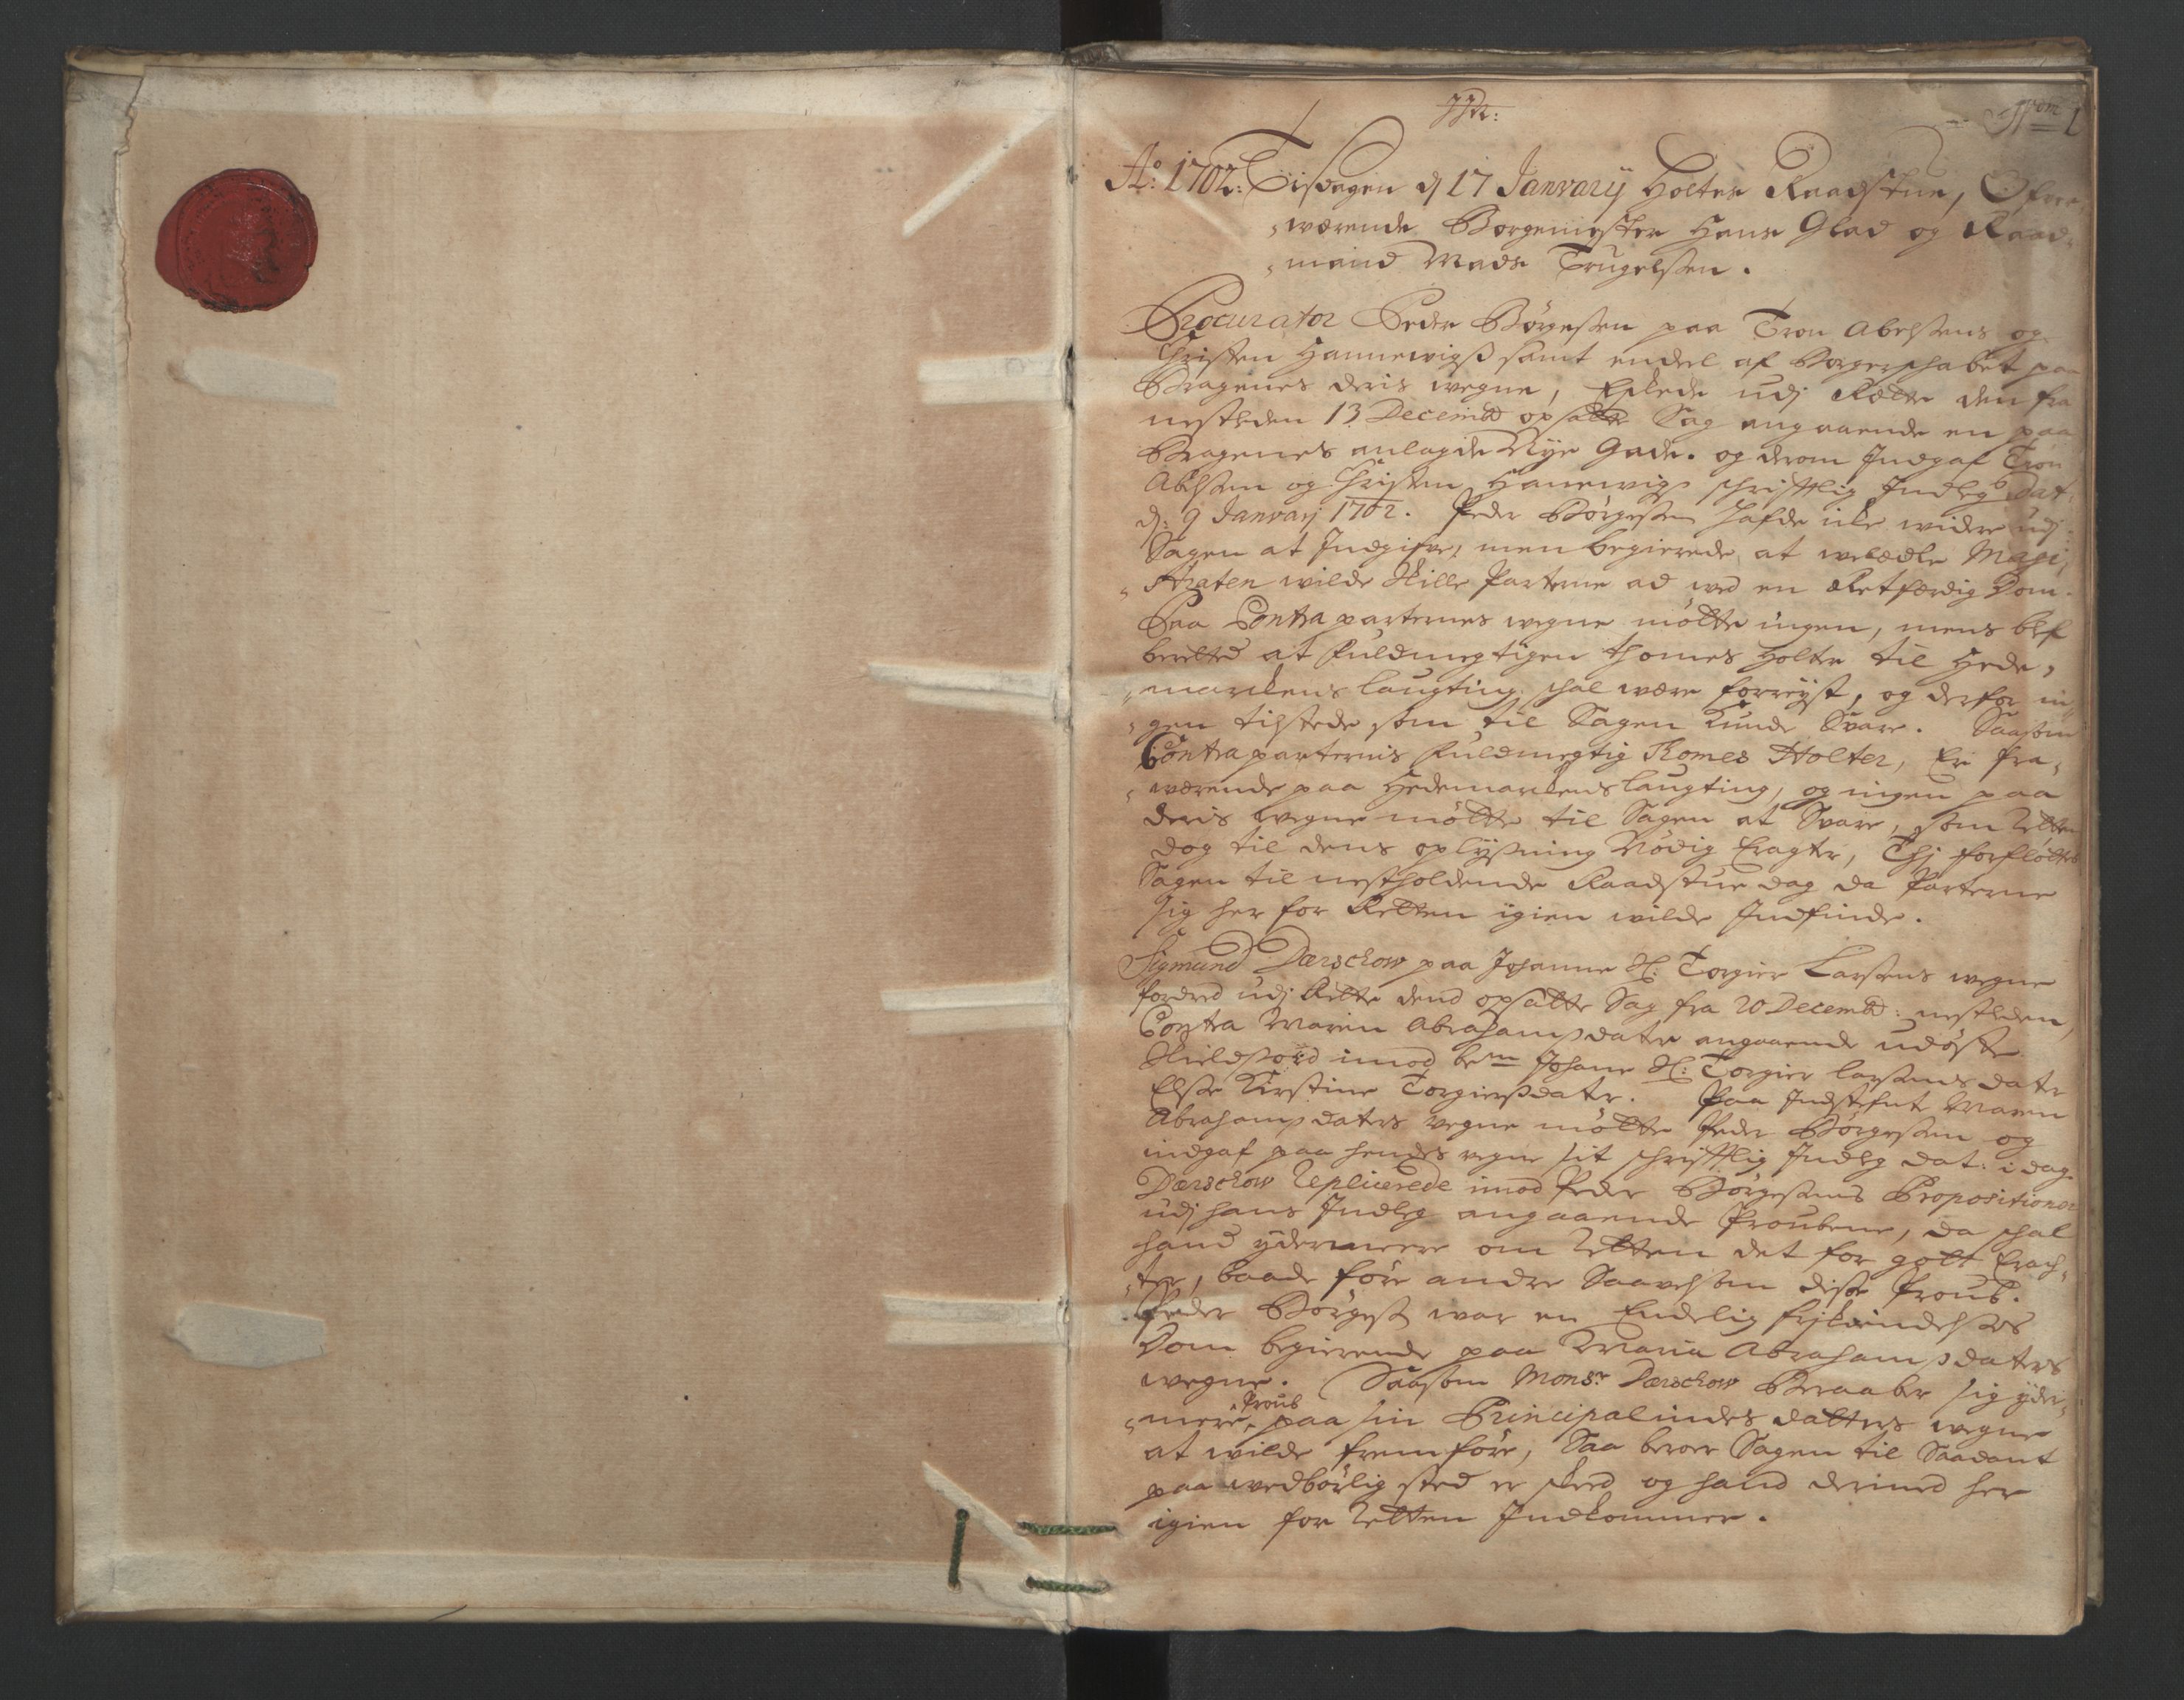 Ao: 1702: Tisdagen d 17 Janvarij Holtes Raadstue, Ofver-
værende Borgemester Hans Glad og Raad-
mand Mads Trugelssen.
Procurator Peder Børgessen paa Tron Abelsens og
Christen Hannewigs samt endel af Borgerschabet paa
Bragenes deris wegne, Eskede udj Rette den fra
nestleden 13 Decembr opsatte Sag angaaende en paa
Bragenes anlagde Nye Gade. og derom Indgaf Tron
Abelsen og Christen Hanewigs schrifftlig Indleg dat:
d: 9 Janvarj 1702. Peder Børgessen hafde icke widre udj
Sagen at Indgifve, men begierede at welædle Magi-
straten wilde skille Parterne ad wed en Retfærdig Dom.
Paa Contraparternes wegne mødte ingen, mens blef
berettet at fuldmegtigen Thomes Holter til Hede-
marckens laugting schal være forreyst, og derfor in-
gen tilstede som til Sagen kunde Svare. Saasom
Contraparternis fuldmegtig Thomes Holter, Er fra-
werende paa Hedemarckens laugting, og ingen paa
deris wegne mødte til Sagen at Svare, som Retten
dog til dens oplysning Nødig Eragter, Thj forfløttes
Sagen til nestholdende Raadstue dag da Parterne
sig her for Retten igien wilde Indfinde.
Sigmund Dærschow paa Johanne Sl: Torgier Larsens wegne
fordred udj Rette dend opsatte Sag fra 20 Decembr: nestleden,
Contra Maren Abrahamsdater angaaende udøste
Skieldsord imod bete Johane Sl: Torgier larsens dater
Else Kirstine Torgiersdater. Paa Indstefnte Maren
Abrahamsdaters wegne mødte Peder Børgessen og
indgaf paa hendes wegne sit schrifftlig Indleg dat: i dag
Dærschow Replicerede imod Peder Børgessens Propositioner
udj hans Indleg angaaende Proubene, da schal
hand ydermeere om Retten det for gott Erach-
ter, baade føre andre Saavelsom disse Proub.
Peder Børges: war en Endelig frjkiendelses
Dom begierende paa Maria Abrahamsdaters
wegne. Saasom Monsr Dærschow Beraaber sig yder-
Proub
mere paa sin Principalindes datters wegne
at wilde fremføre, Saa beroer Sagen til Saadant
paa wedbørlig sted er skeed og hand dermed her
igien for Retten Indkommer.